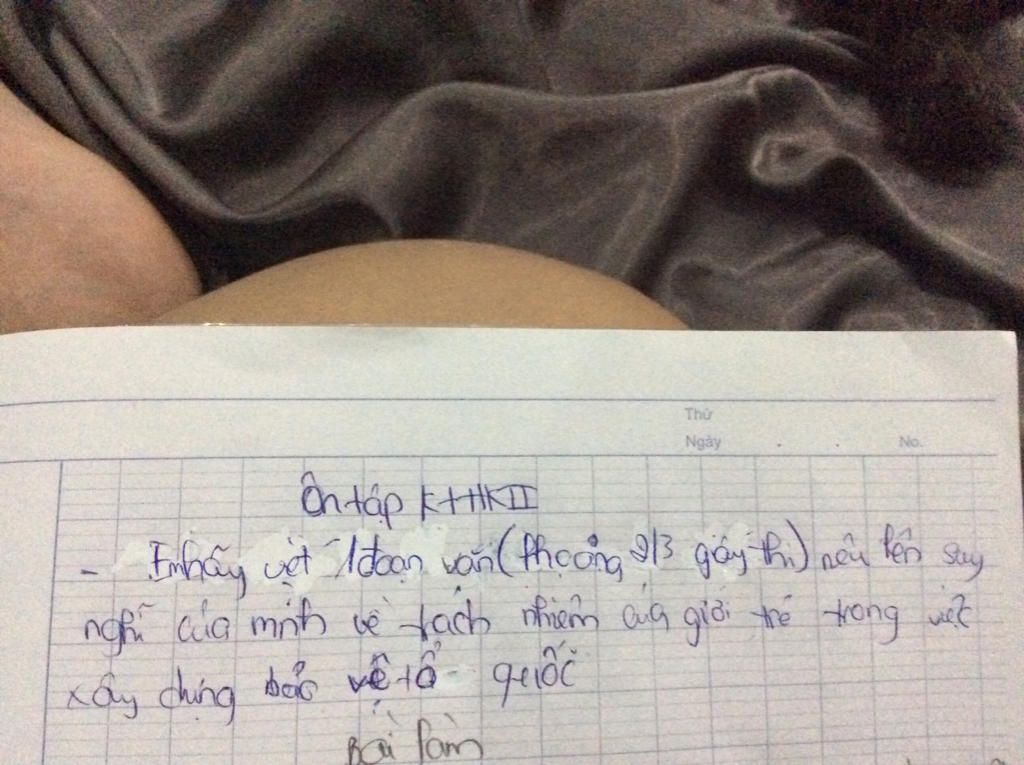 Thứ
Ngày . . No.
Ôn tập KTHKII
- Em hãy viết 1 đoạn văn (khoảng 2/3 giấy thi) nêu lên suy
nghĩ của mình về trách nhiệm của giới trẻ trong việc
xây dựng bảo vệ tổ quốc
Bài làm